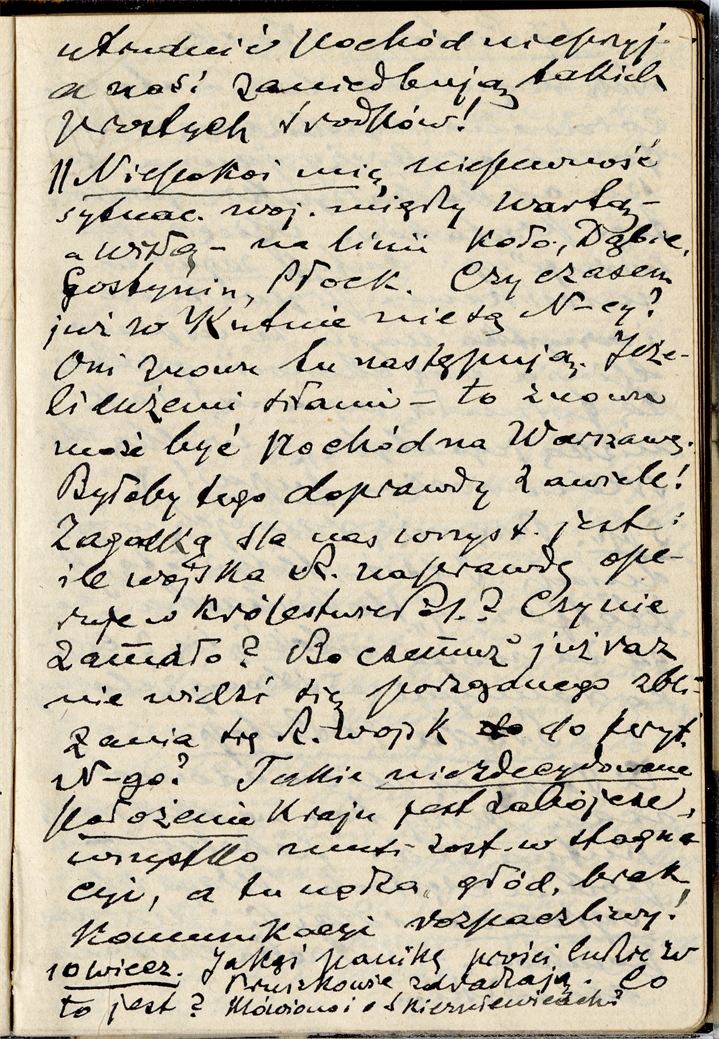 utrudnić pochód nieprzyj.
a nasi zaniedbują takich
prostych środków!
11 Niepokoi mię niepewność
sytuac. woj. między Wartą –
a Wisłą – na linii Koło, Dąbie,
Gostynin, Płock. Czy czasem
już w Kutnie nie są N-cy?
Oni znowu tu następują. Jeże-
li dużemi siłami – to znowu
może być pochód na Warszawę.
Byłoby tego doprawdy zawiele!
Zagadką dla nas wszyst. jest:
ile wojska R. naprawdę ope-
ruje w Królestwie Pol.? Czy nie
zamało? Bo czemuż już raz
nie widzi się porządnego zbli-
żania się R. wojsk do teryt.
N-go? Takie niezdecydowane
położenie Kraju jest zabójcze,
wszystko musi zost. w stagna
cyi, a tu nędza, głód, brak
komunikacyi rozpaczliwy!
10 wiecz. Jakąś panikę prości ludzie w
Pruszkowie zdradzają. Co
to jest? Mówiono i o Skierniewicach?